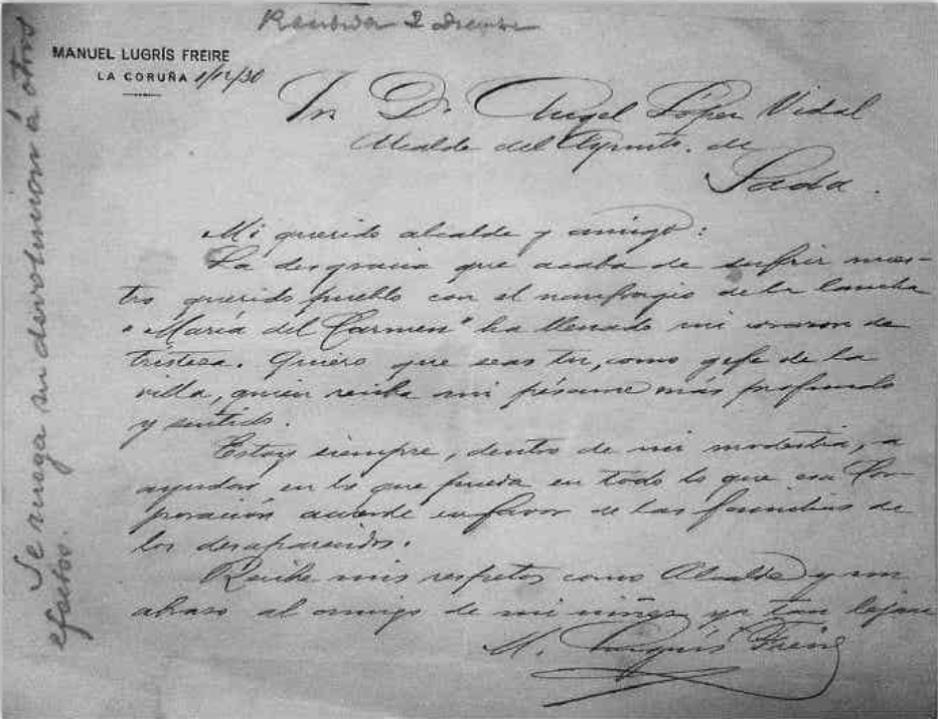 Recibida 2 diciembre
MANUEL LUGRÍS FREIRE
LA CORUÑA 1/12/30
Sr. D. Angel López Vidal
Alcalde del Ayunto. de
Sada.
Mi querido alcalde y amigo:
La desgracia que acaba de sufrir nues-
tro querido pueblo con el naufragio de la lancha
"María del Carmen" ha llenado mi corazon de
tristeza. Quiero que seas tu, como gefe de la
villa, quien reciba mi pésame más profundo
y sentido.
Estoy siempre, dentro de mi modestia, a
ayudar en lo que pueda en todo lo que esa Cor-
poración acuerde en favor de las familias de
los desaparecidos.
Recibe mis respetos como Alcalde y un
abrazo al amigo de mi niñez ya tan lejana
M. Lugrís Freire
Se ruega su devolución á otros
efectos.